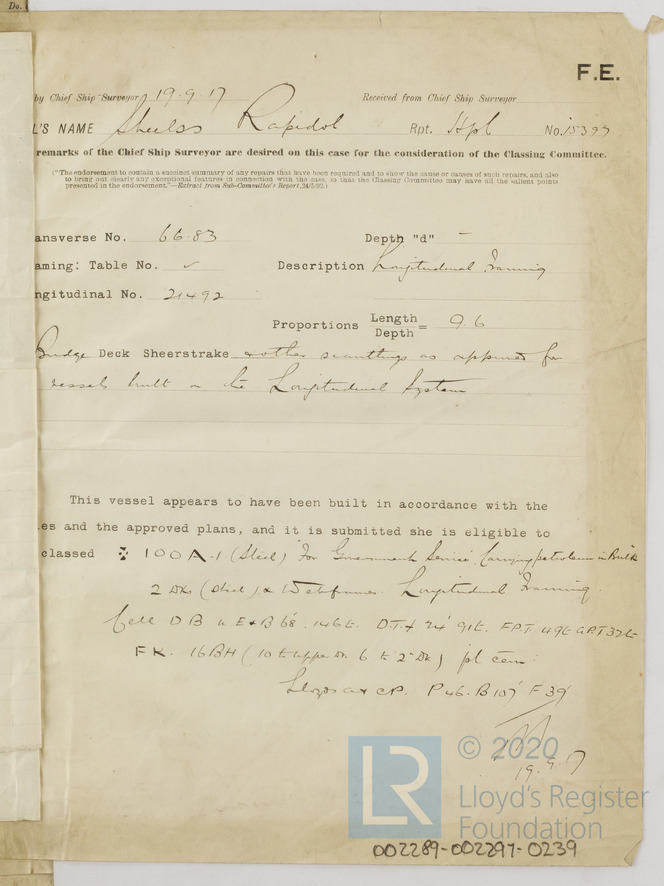 Do.
F.E.
by Chief Ship Surveyor 19.9.17 Received from Chief Ship Surveyor
L'S NAME Rapidol Rpt. Hpl No. 15397
remarks of the Chief Ship Surveyor are desired on this case for the consideration of the Classing Committee.
("The endorsement to contain a succinct summary of any repairs that have been required and to show the cause or causes of such repairs, and also
to bring out clearly any exceptional features in connection with the case, so that the Classing Committee may have all the salient points
presented in the endorsement."—Extract from Sub-Committee's Report, 24/5/92.)
ansverse No. 66.83 Depth "d" –
aming: Table No. ✓ Description Longitudinal Framing
ngitudinal No. 21492
Proportions Length
Depth = 9.6
Bridge Deck Sheerstrake & other scantlings as approved for
vessels built on the Longitudinal System
This vessel appears to have been built in accordance with the
es and the approved plans, and it is submitted she is eligible to
classed 100A-1 (Steel) For Government Service Carrying petroleum in Bulk
2 Dks (steel) & Webframes. Longitudinal Framing.
Cell D B u E & B 68' 146t. D.T.f 24' 91t. F.P.T 49t A.P.T 32t
F.K. 16BH (10 to upper dk 6 to 2nd Dk) pt cem:
Lloyds a & c.P. P46. B107' F39'
19.9.17
© 2020
LR
Lloyd's Register
Foundation
002289-002297-0239